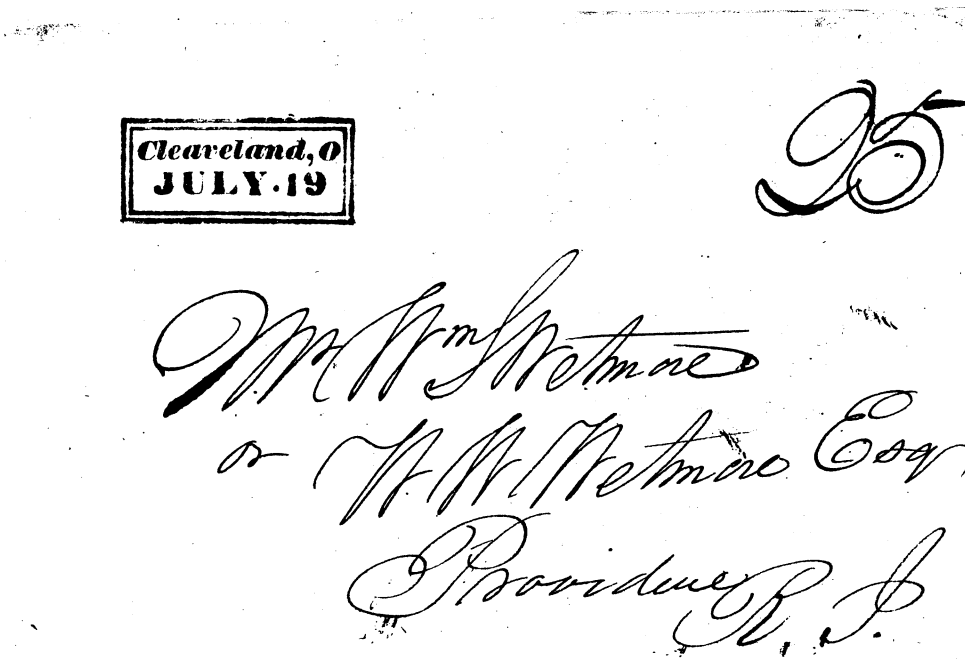 Cleaveland, O
JULY. 19
25
Mr. Wm S Wetmore
or W. W. Wetmore Esq.
Providence
R. I.